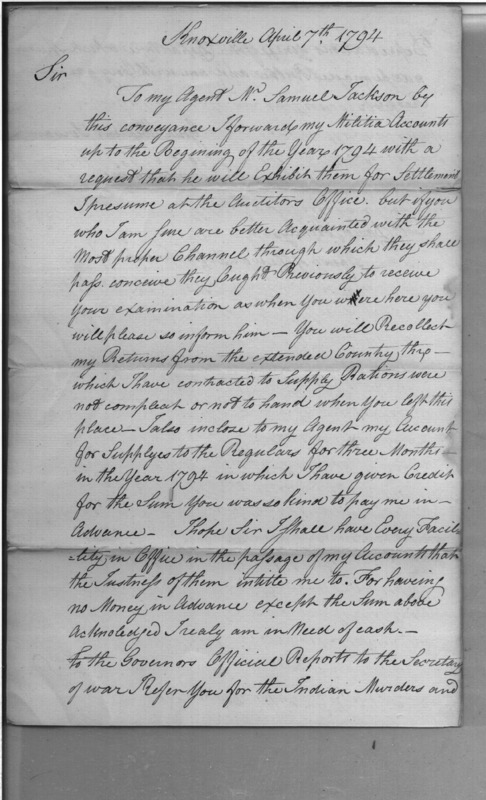 Knoxville April 7th 1794
Sir
To my Agent Mr. Samuel Jackson by
this conveyance I forward my Militia Accounts
up to the Begining of the Year 1794 with a
request that he will Exhibit them for Settlement
I presume at the Auditors Office. but if you
who I am sure are better Acquainted with the
Most proper Channel through which they shall
pass. conceive they Ought Previously to receive
your examination as when you were here you
will please so inform him — You will Recollect
my Returns from the extended Country thro —
which I have contracted to Supply Rations were
not compleat or not to hand when you left this
place — I also inclose to my Agent my Account
for Supplyes to the Regulars for three Months —
in the Year 1794 in which I have given Credit
for the Sum You was so kind to pay me in —
Advance — I hope Sir I shall have Every Facil-
-lity in Office in the passage of my Accounts that
the Justness of them intitle me to. For haveing
no Money in Advance except the Sum above
Acknoledged I realy am in Need of cash. —
to the Governors Official Reports to the Secretary
of war I Refer You for the Indian Murders and